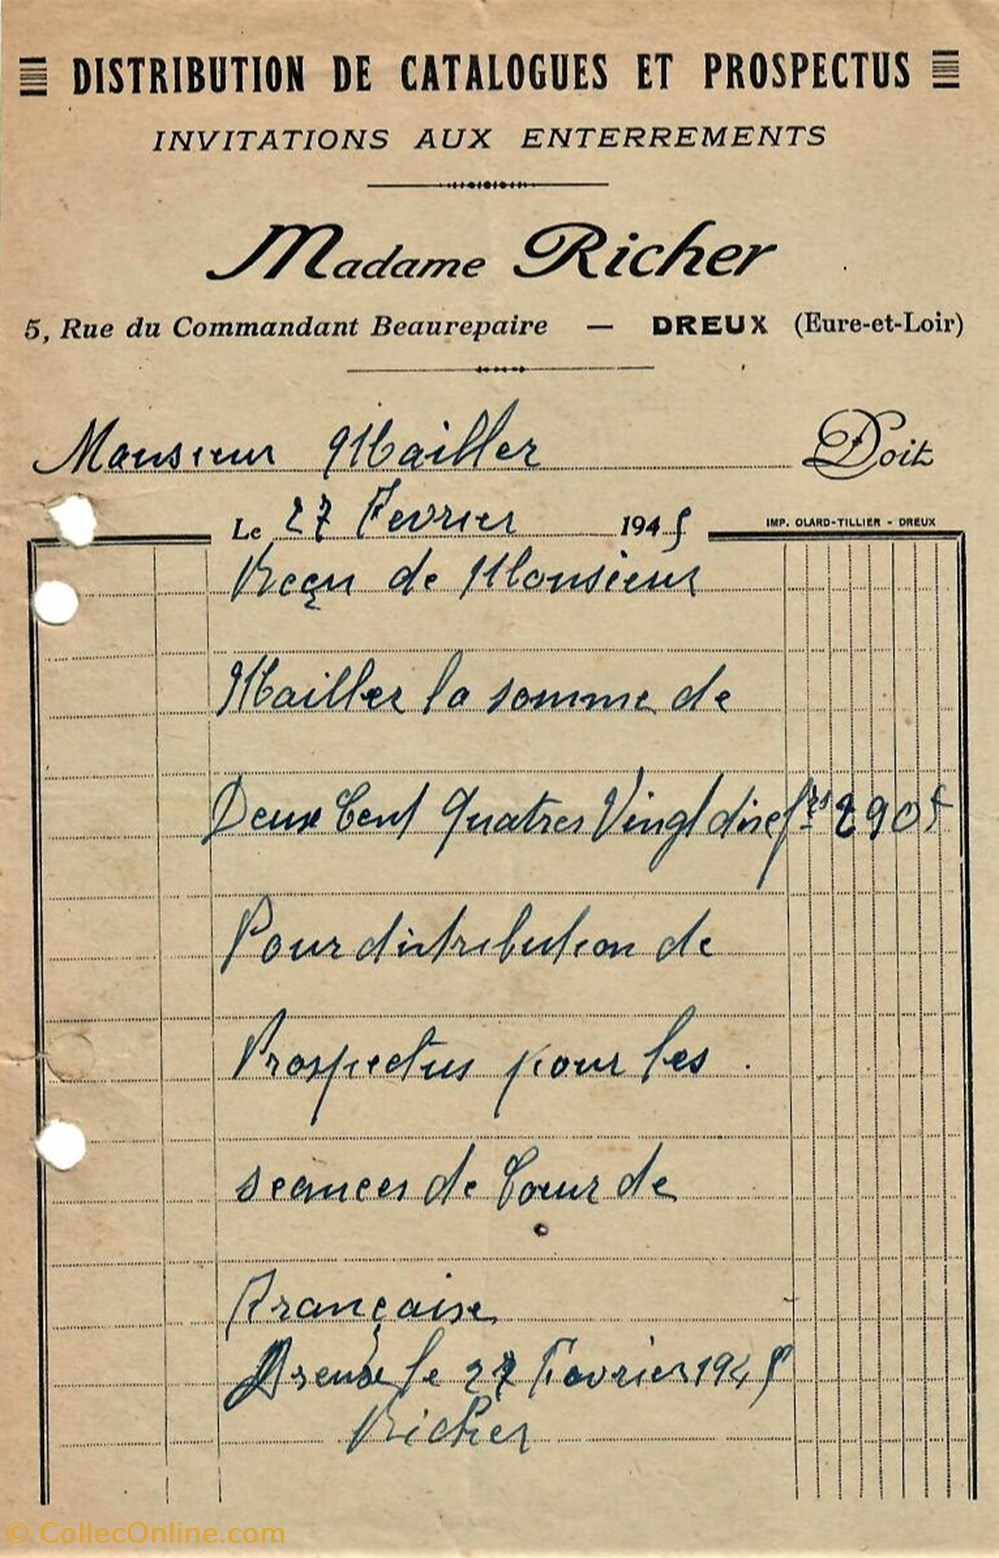 DISTRIBUTION DE CATALOGUES ET PROSPECTUS
INVITATIONS AUX ENTERREMENTS
Madame Richer
5, Rue du Commandant Beaurepaire — DREUX (Eure-et-Loir)
Monsieur Mailler Doit
Le 27 Fevrier 1945
IMP. OLARD-TILLIER - DREUX
Reçu de Monsieur
Mailler la somme de
Deux Cent Quatres Vingt dix frs 290f
Pour distribution de
Prospectus pour les
seances de Coeur de
Française
Dreux le 27 Fevrier 1945
Richer
© CollecOnline.com